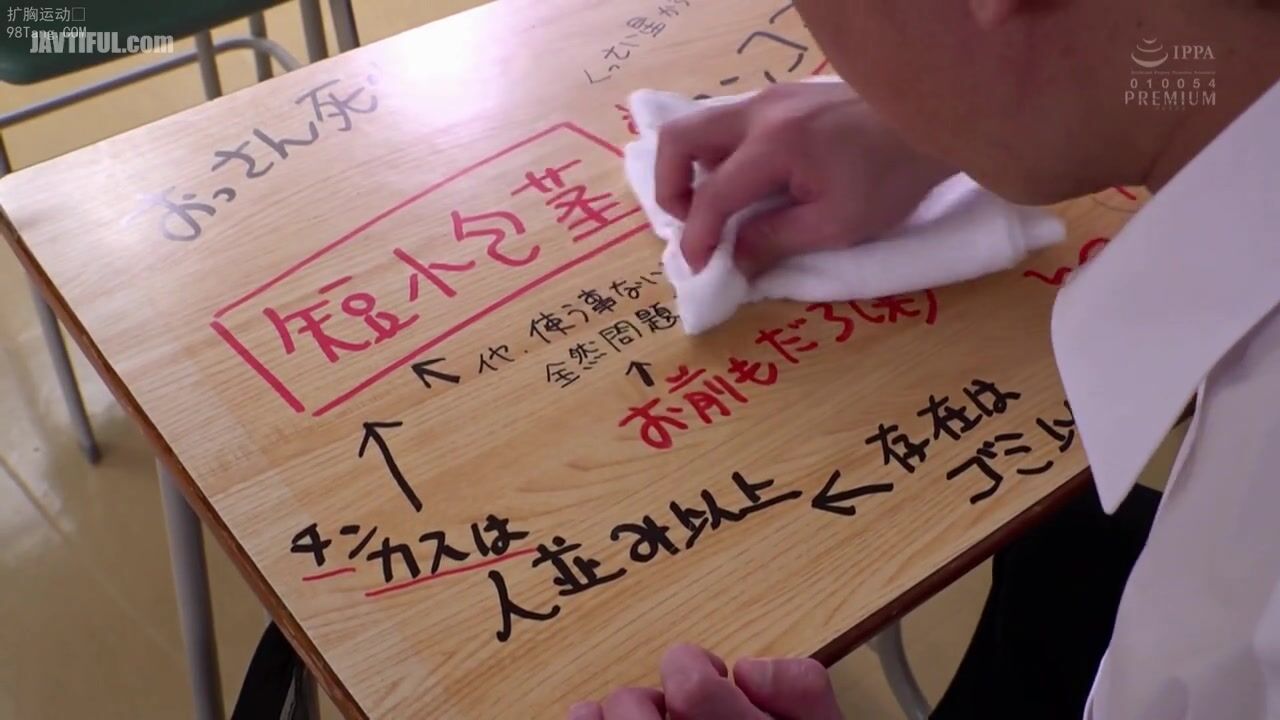 扩胸运动
98Tang.COM
JAVTIFUL.com
IPPA
010054
PREMIUM
おっさん死
くっさい
短小包茎
使う事ない
全然問題
お前もだろ(笑)
存在は
ゴミ以
チンカスは
人並み以上